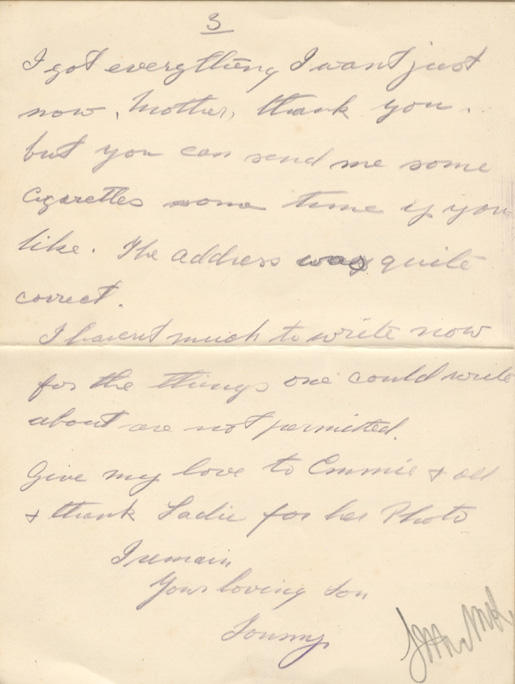 3
I got everything I want just
now, Mother, thank you.
but you can send me some
cigarettes some time if you
like. The address was quite
correct.
I havent much to write now
for the things one could write
about are not permitted.
Give my love to Emmie & all
& thank Sadie for her Photo
I remain
Your loving Son